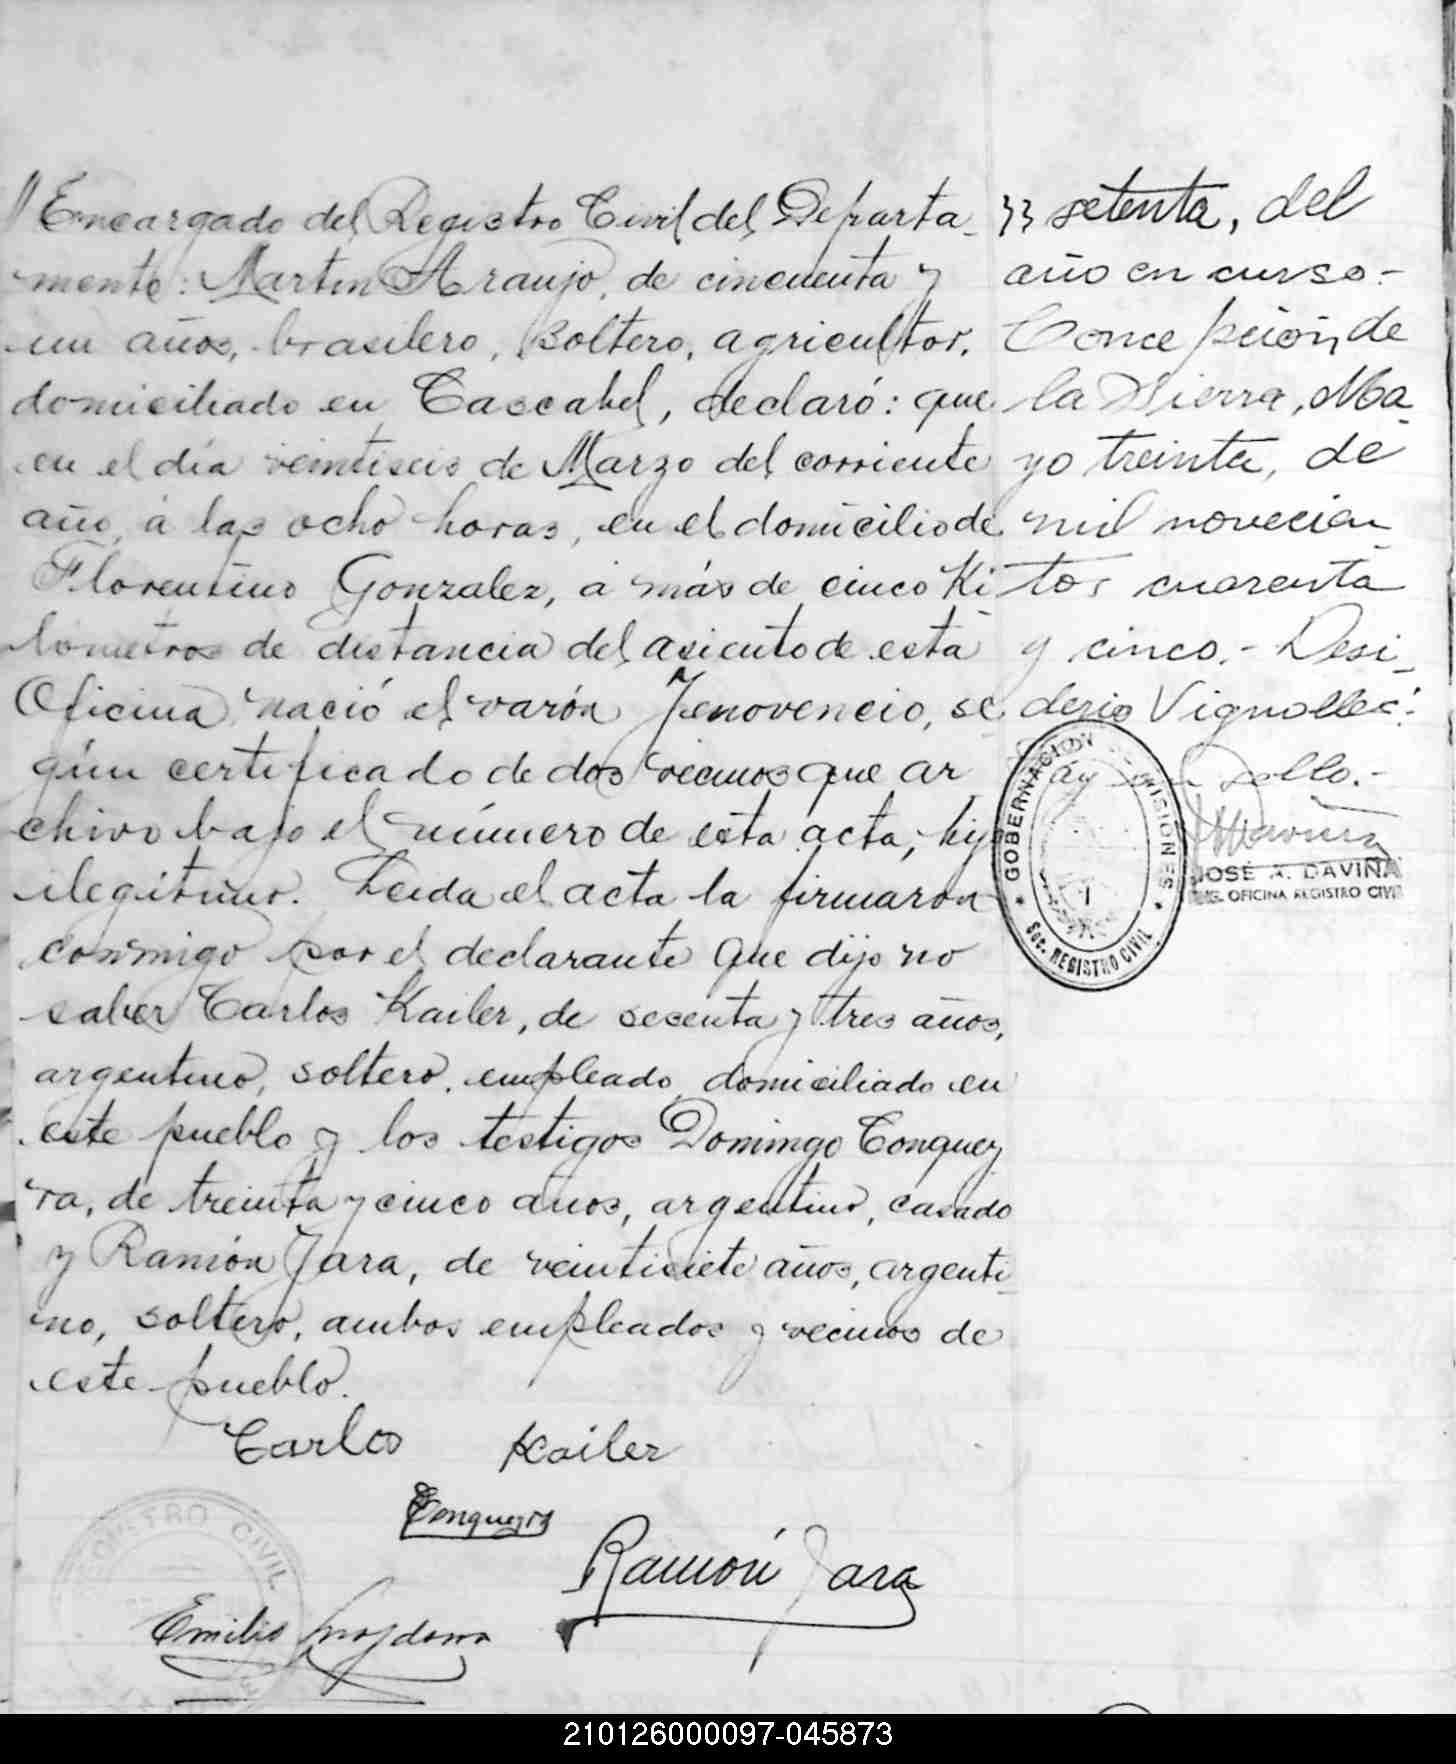 // Encargado del Registro Civil del Departa-
mento: Martin Araujo, de cincuenta y
un años, brasilero, soltero, agricultor,
domiciliado en Cascabel, declaró: que
en el día veintiseis de Marzo del corriente
año, á las ocho horas, en el domicilio de
Florentino Gonzalez, á más de cinco Ki
lómetros de distancia del asiento de esta
Oficina nació el varón Jenovencio, se
gún certificado de dos vecinos que ar
chivo bajo el número de esta acta, hijo
ilegítimo. Leida el acta la firmaron
conmigo por el declarante que dijo no
saber Carlos Kailer, de sesenta y tres años,
argentino, soltero, empleado, domiciliado en
este pueblo y los testigos Domingo Conquey
ra, de treinta y cinco años, argentino, casado
y Ramón Jara, de veintisiete años, argenti
no, soltero, ambos empleados y vecinos de
este pueblo.
Carlos Kailer
Conqueyra
Ramón Jara
Emilio
REGISTRO CIVIL
setenta, del
año en curso.-
Concepción de
la Sierra, Ma
yo treinta, de
mil novecien
tos cuarenta
y cinco.- Desi
derio Vignolles:
Hay un sello.-
GOBERNACION MISIONES
Sec. REGISTRO CIVIL
JOSÉ A. DAVIÑA
ENC. OFICINA REGISTRO CIVIL
210126000097-045873